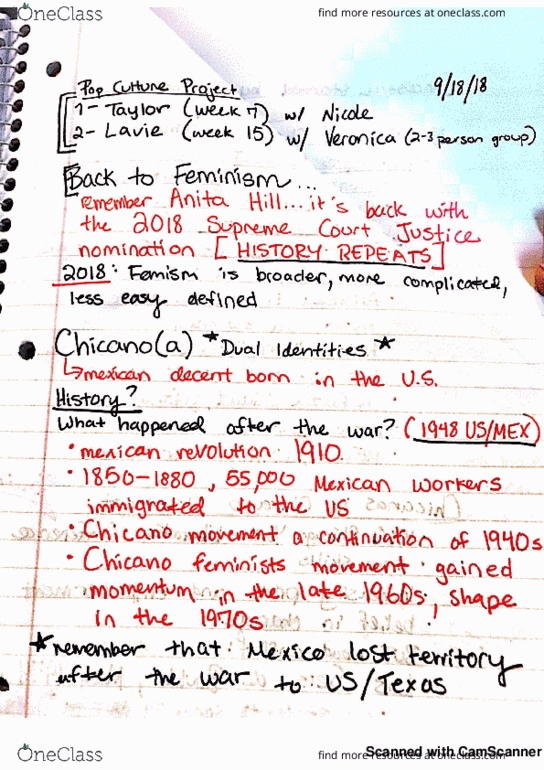 OneClass
find more resources at oneclass.com
Pop Culture Project
9/18/18
1- Taylor (week 7) w/ Nicole
2- Lavie (week 15) w/ Veronica (2-3 person group)
Back to Feminism...
remember Anita Hill...it's back with
the 2018 Supreme Court Justice
nomination [HISTORY REPEATS]
2018: Femism is broader, more complicated,
less easy defined
Chicano(a) *Dual Identities*
↳mexican decent born in the U.S.
History?
What happened after the war? (1948 US/MEX)
• mexican revolution 1910
• 1850-1880, 55,000 Mexican workers
immigrated to the US
• Chicano movement a continuation of 1940s
• Chicano feminists movement gained
momentum in the late 1960s, shape
in the 1970s
*remember that Mexico lost territory
after the war to US/Texas
OneClass
find more resources at oneclass.com
Scanned with CamScanner